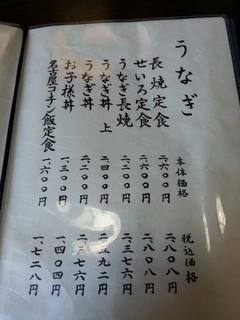 うなぎ
本体価格 税込価格
長焼定食 二、六〇〇円 二、八〇八円
せいろ定食 二、六〇〇円 二、八〇八円
うなぎ長焼 二、二〇〇円 二、三七六円
うなぎ丼 上 二、四〇〇円 二、五九二円
うなぎ丼 二、二〇〇円 二、三七六円
お子様丼 一、三〇〇円 一、四〇四円
名古屋コーチン飯定食 一、六〇〇円 一、七二八円